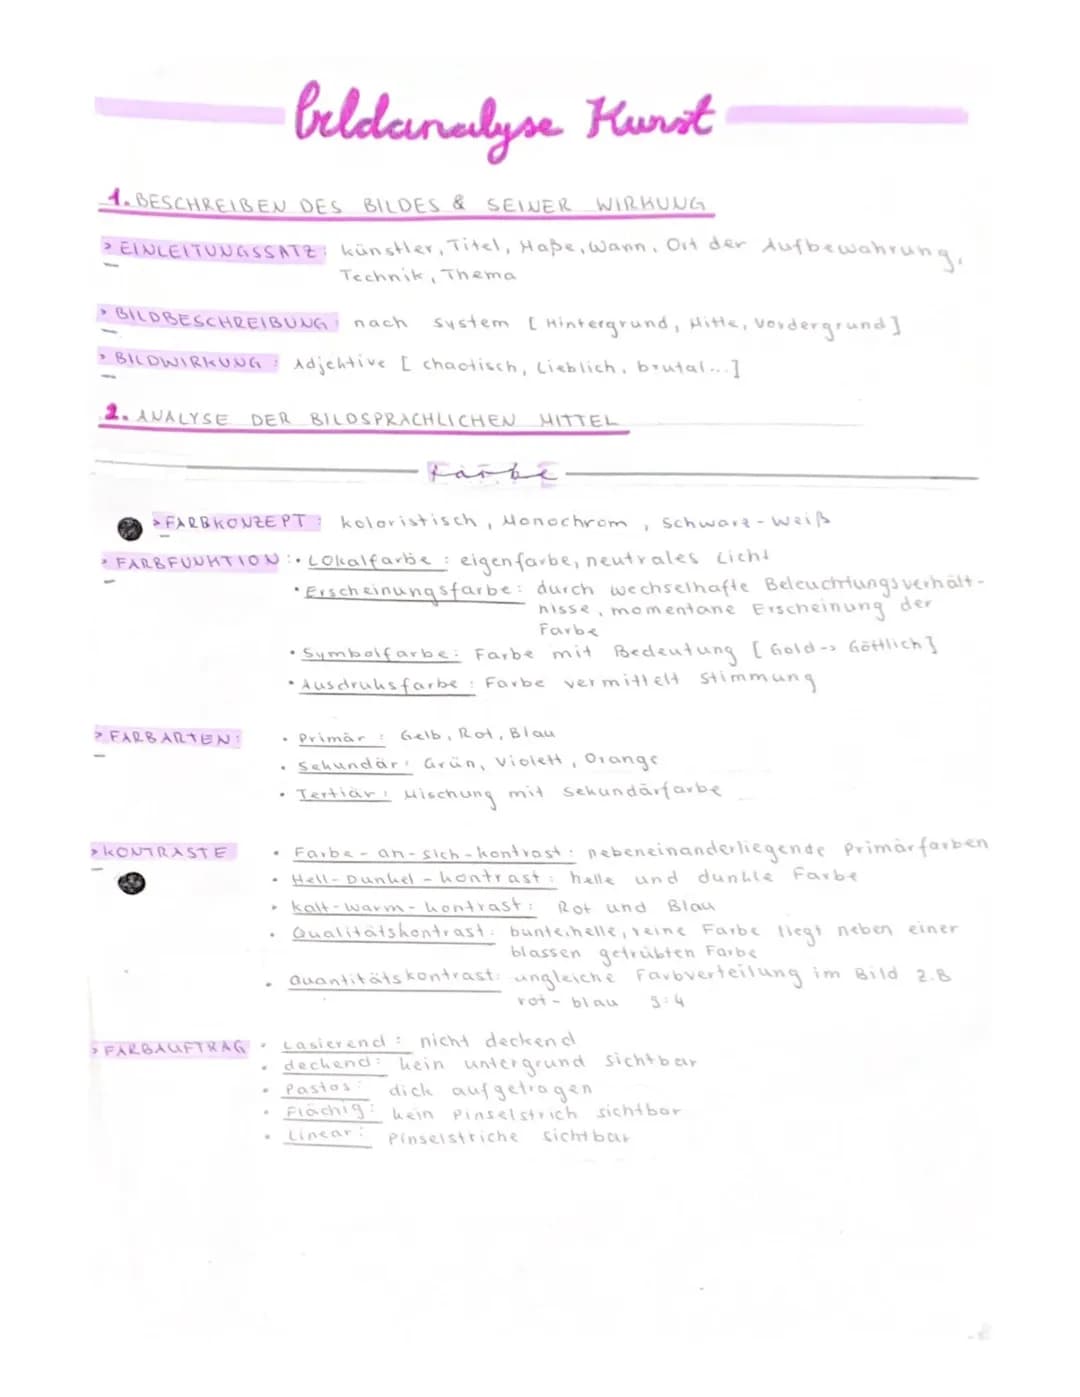 Bildanalyse Kunst
1. BESCHREIBEN DES BILDES & SEINER WIRKUNG
> EINLEITUNGSSATZ: Künstler, Titel, Maße, Wann, Ort der Aufbewahrung,
Technik, Thema
> BILDBESCHREIBUNG: nach System [Hintergrund, Mitte, Vordergrund]
> BILDWIRKUNG: Adjektive [chaotisch, Lieblich, brutal...]
2. ANALYSE DER BILDSPRACHLICHEN MITTEL
Farbe
> FARBKONZEPT: koloristisch, Monochrom, Schwarz-Weiß
> FARBFUNKTION: • Lokalfarbe: eigenfarbe, neutrales Licht
• Erscheinungsfarbe: durch wechselhafte Beleuchtungsverhält-
nisse, momentane Erscheinung der
Farbe
• Symbolfarbe: Farbe mit Bedeutung [Gold -> Göttlich]
• Ausdruksfarbe: Farbe vermittelt Stimmung
> FARBARTEN: • Primär: Gelb, Rot, Blau
• Sekundär: Grün, Violett, Orange
• Tertiär: Mischung mit Sekundärfarbe
> KONTRASTE • Farbe-an-sich-kontrast: nebeneinanderliegende Primärfarben
• Hell-Dunkel-kontrast: helle und dunkle Farbe
• Kalt-warm-kontrast: Rot und Blau
• Qualitätskontrast: bunte, helle, reine Farbe liegt neben einer
blassen getrübten Farbe
• Quantitätskontrast: ungleiche Farbverteilung im Bild z.B
rot-blau 5:4
> FARBAUFTRAG • Lasierend: nicht deckend
• deckend: kein untergrund sichtbar
• Pastos: dick aufgetragen
• Flächig: kein Pinselstrich sichtbar
• Linear: Pinselstriche sichtbar